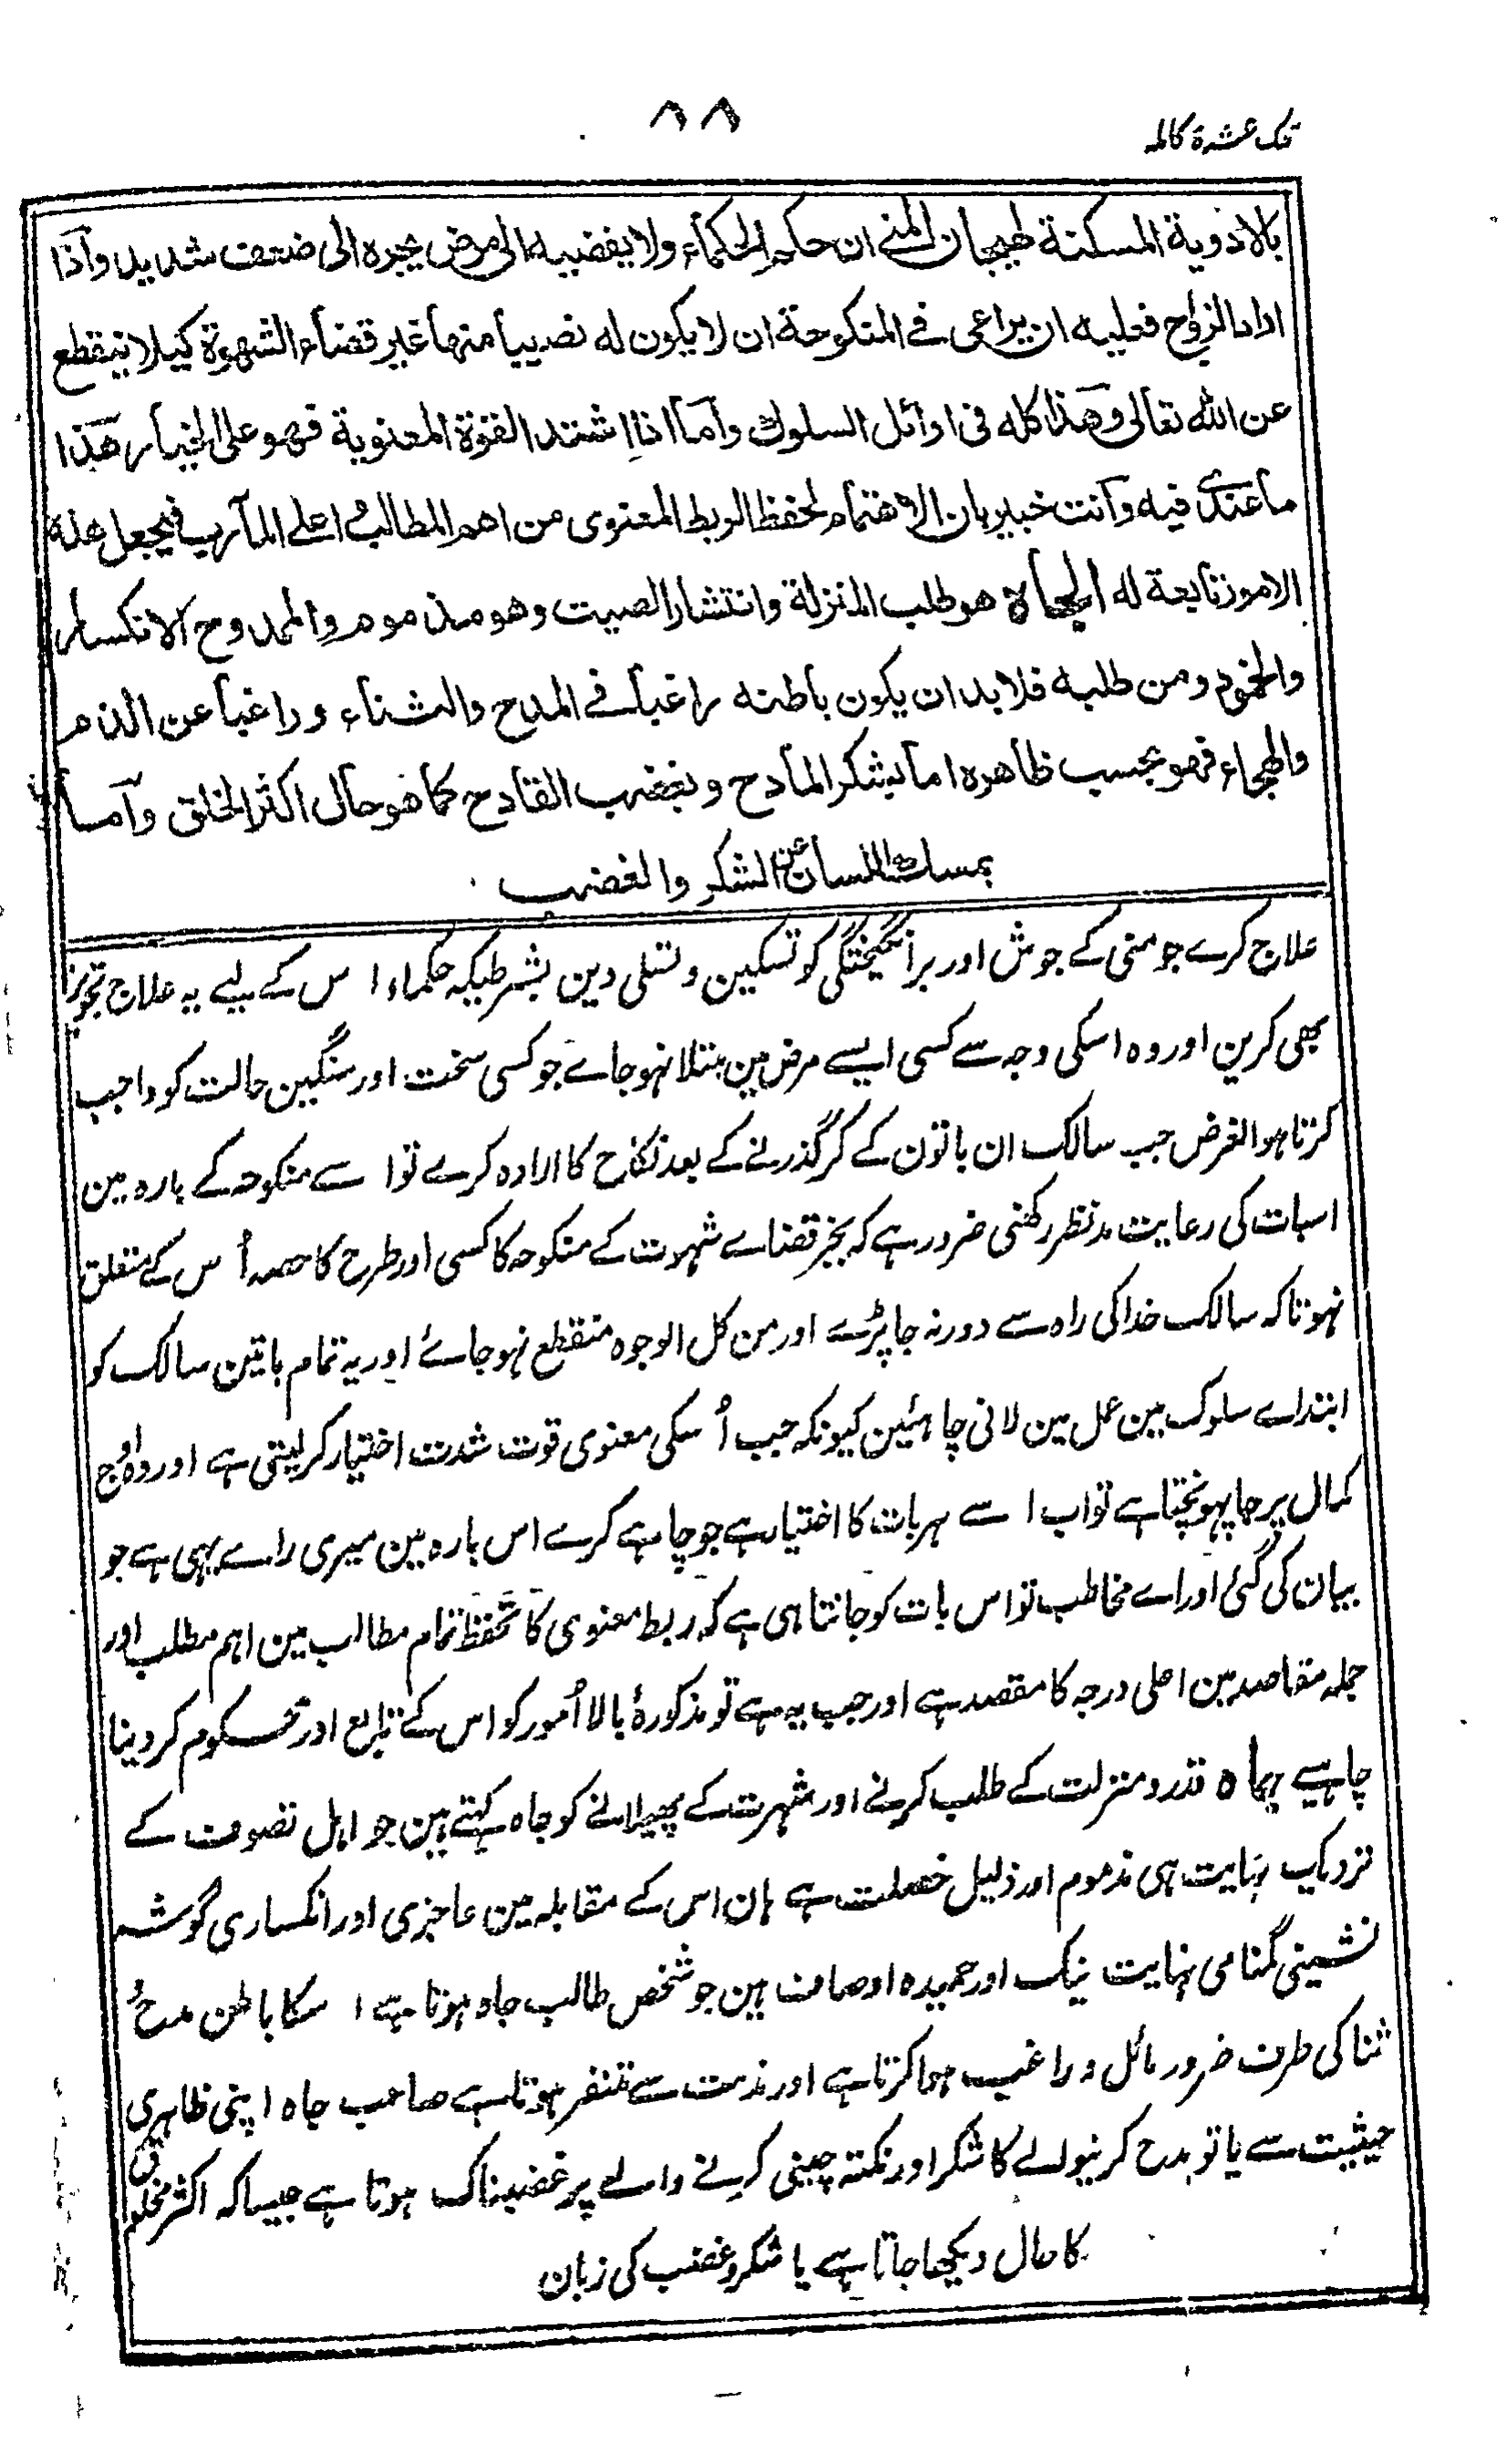 ۸۸
تلک عشرة کاملہ
بالادوية المسكنة لهيجان المني ان حكم الحكماء ولا يفضي به الى مرض يجره الى ضعف شديد واذا
اراد الزواج فعليه ان يراعى في المنكوحة ان لا يكون له نصيباً منها غير قضاء الشهوة كيلا ينقطع
عن الله تعالى وهذا كله فى اوائل السلوك واما اذا اشتد القوة المعنوية فهو على الخيار هذا
ما عندى فيه وانت خبير بان الاهتمام لحفظ الربط المعنوى من اهم المطالب و اعلى المآرب فيجعل هذه
الامور تابعة له الجاه هو طلب المنزلة وانتشار الصيت وهو مذموم والممدوح الانكسار
والخمود ومن طلبه فلابد ان يكون باطنه راغباً في المدح والثناء وراغباً عن الذم
والهجاء فهو بحسب ظاهره اما يشكر المادح ويغضب القادح كما هو حال اكثر الخلق واما
يمسك اللسان عن الشكر والغضب
علاج کرے جو منی کے جوش اور برانگیختگی کو تسکین و تسلی دین بشرطیکہ حکماء اس کے لیے یہ علاج تجویز
بھی کرین اور وہ اسکی وجہ سے کسی ایسے مرض مین مبتلا نہوجاے جو کسی سخت اور سنگین حالت کو واجب
کرتا ہو الغرض جب سالک ان باتون کے کر گذرنے کے بعد نکاح کا ارادہ کرے تو اسے منکوحہ کے بارہ مین
اسبات کی رعایت مدنظر رکھنی ضرور ہے کہ بجز قضاے شہوت کے منکوحہ کا کسی اور طرح کا حصہ اُس کے متعلق
نہو تاکہ سالک خدا کی راہ سے دور نہ جا پڑے اور من کل الوجوہ منقطع نہو جائے اور یہ تمام باتین سالک کو
ابتداے سلوک مین عمل مین لانی چاہئین کیونکہ جب اُسکی معنوی قوت شدت اختیار کرلیتی ہے اور وہ اوج
کمال پر جا پہونچتا ہے تو اب اسے ہر بات کا اختیار ہے جو چاہے کرے اس بارہ مین میری راے یہی ہے جو
بیان کی گئی اور اے مخاطب تو اس بات کو جانتا ہی ہے کہ ربط معنوی کا تحفظ تمام مطالب مین اہم مطلب اور
جملہ مقاصد مین اعلی درجہ کا مقصد ہے اور جب یہ ہے تو مذکورۂ بالا اُمور کو اس کے تابع اور محکوم کر دینا
چاہیے جاہ قدر و منزلت کے طلب کرنے اور شہرت کے پھیلانے کو جاہ کہتے ہین جو اہل تصوف کے
نزدیک نہایت ہی مذموم اور ذلیل خصلت ہے ہان اس کے مقابلہ مین عاجزی اور انکساری گوشہ
نشینی گمنامی نہایت نیک اور حمیدہ اوصاف ہین جو شخص طالب جاہ ہوتا ہے اسکا باطن مدح و
ثنا کی طرف ضرور مائل و راغب ہوا کرتا ہے اور مذمت سے متنفر ہوتا ہے صاحب جاہ اپنی ظاہری
حیثیت سے یا تو مدح کرنیوالے کا شکر اور نکتہ چینی کرنے والے پر غضبناک ہوتا ہے جیسا کہ اکثر مخلوق
کا حال دیکھا جاتا ہے یا شکر و غضب کی زبان